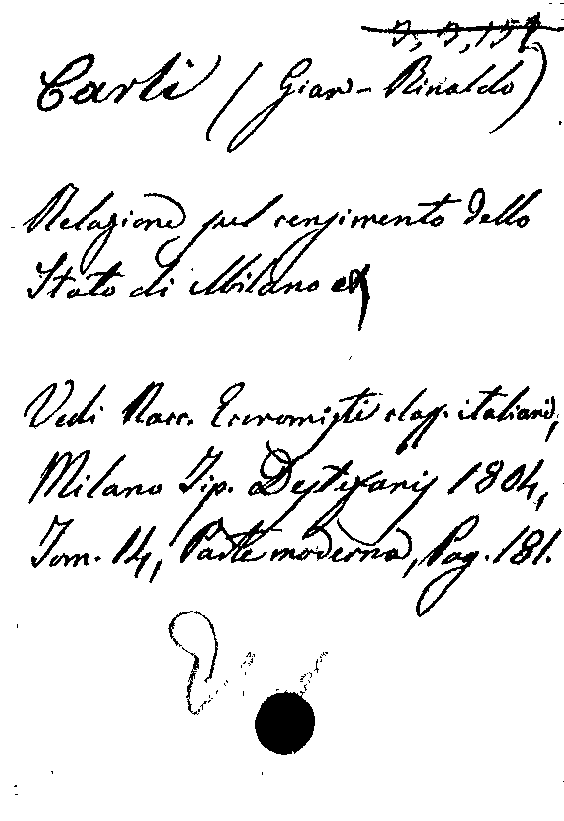 Carli (Gian-Rinaldo)
Relazione sul censimento dello
Stato di Milano
Vedi Racc. Economisti class. italiani,
Milano Tip. Destefanis 1804,
Tom. 14, Parte moderna, Pag. 181.